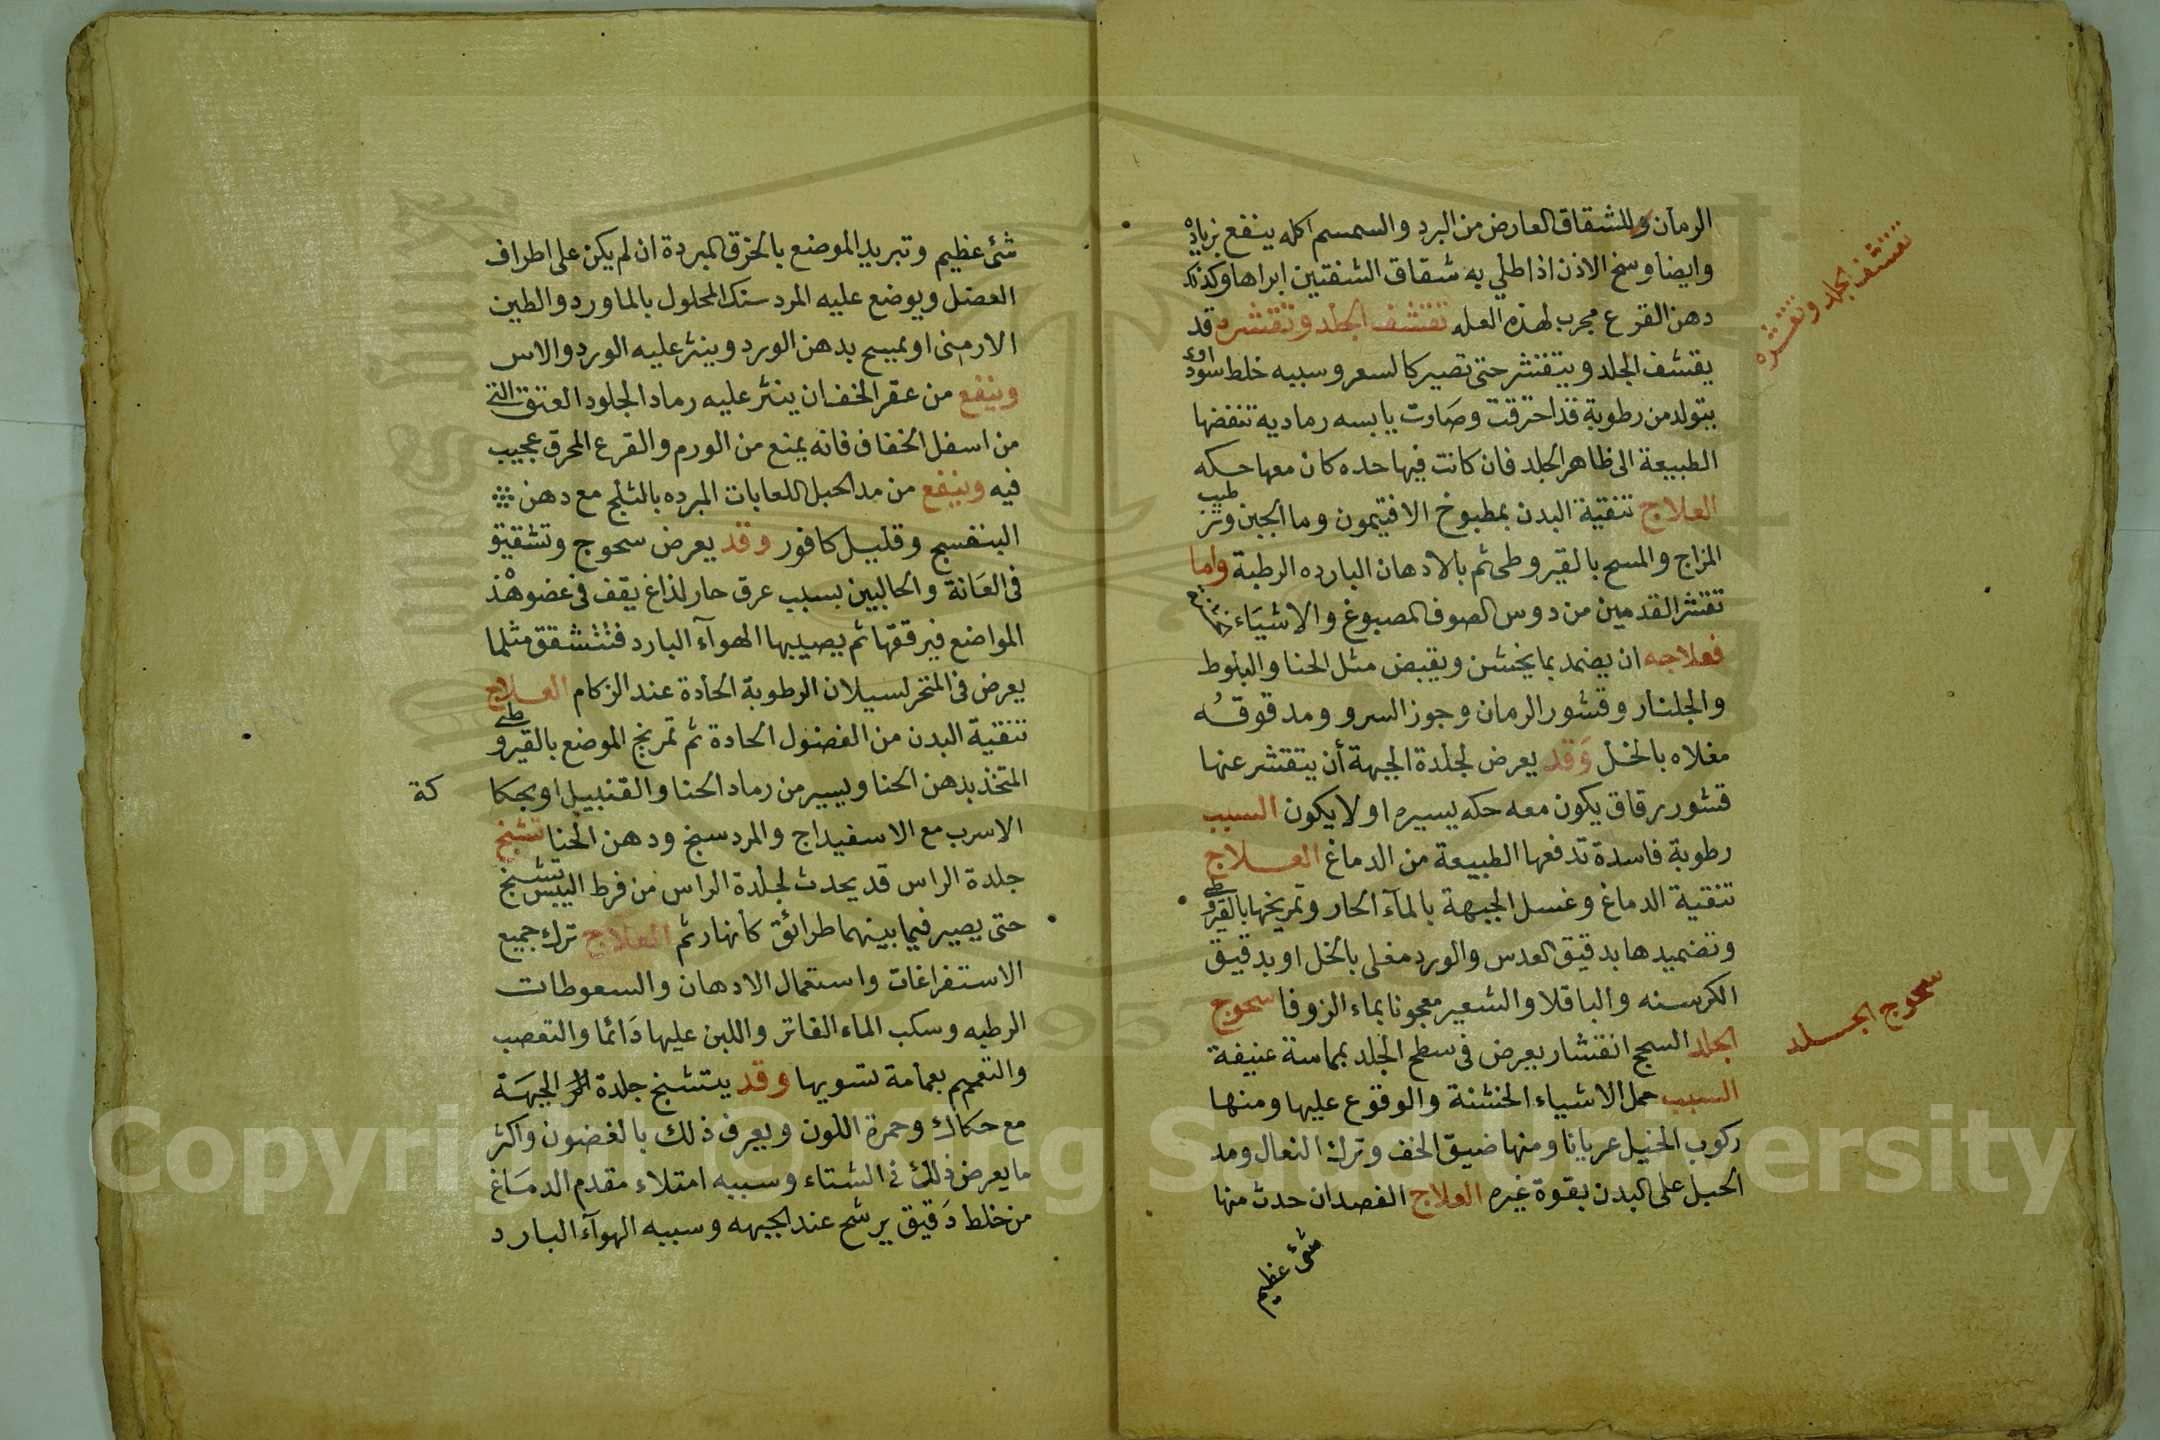 الرمان وللشقاق العارض من البرد والسمسم اكله ينفع بزياده
وايضا وسخ الاذن اذا طلي به شقاق الشفتين ابراها وكذلك
دهن القرع مجرب لهذه العله تقشف الجلد وتقشره قد
تقشف الجلد وتقشره
يقشف الجلد ويتقشر حتى تصير كالسعر وسببه خلط سوداوى
يتولد من رطوبة قد احترقت وصارت يابسه رماديه تنفضها
الطبيعة الى ظاهر الجلد فان كانت فيها حده كان معها حكه
العلاج تنقية البدن بمطبوخ الافتيمون وما الجبن وترطيب
المزاج والمسح بالقيروطى ثم بالادهان البارده الرطبة واما
تقشر القدمين من دوس الصوف المصبوغ والاشياء
فعلاجه ان يضمد بما يخشن ويقبض مثل الحنا والبلوط
والجلنار وقشور الرمان وجوز السرو ومدقوقه
مغلاه بالخل وقد يعرض لجلدة الجبهة أن يتقشر عنها
قشور رقاق يكون معه حكه يسيره او لا يكون السبب
رطوبة فاسدة تدفعها الطبيعة من الدماغ العلاج
تنقية الدماغ وغسل الجبهة بالمآء الحار وتمريخها بالقيروطى
وتضميدها بدقيق العدس والورد مغلى بالخل او بدقيق
الكرسنه والباقلا والشعير معجونا بماء الزوفا سحوج
سحوج الجلد
الجلد السحج انقشار يعرض فى سطح الجلد بمماسة عنيفة
السبب حمل الاشياء الخشنة والوقوع عليها ومنها
ركوب الخيل عريانا ومنها ضيق الخف وترك النعال ومد
الحبل على البدن بقوة غيره العلاج الفصد ان حدث منها
شئ عظيم
شئ عظيم وتبريد الموضع بالخرق المبردة ان لم يكن على اطراف
العضل ويوضع عليه المرد سنك المحلول بالماورد والطين
الارمنى او يمسح بدهن الورد وينثر عليه الورد والاس
وينفع من عقر الخف ان ينثر عليه رماد الجلود العتق التى
من اسفل الخفاف فانه يمنع من الورم والقرع المحرق عجيب
فيه وينفع من مد الحبل اللعابات المبرده بالثلج مع دهن
البنفسج وقليل كافور وقد يعرض سحوج وتشقيق
فى العانة والحالبين بسبب عرق حار لذاغ يقف فى غضو هذه
المواضع فيرققها ثم يصيبها الهوآء البارد فتتشقق مثلما
يعرض فى المنخر لسيلان الرطوبة الحادة عند الزكام العلاج
تنقية البدن من الفضول الحادة ثم تمريخ الموضع بالقيروطى
المتخذ بدهن الحنا ويسير من رماد الحنا والقنبيل او بحكا
كة
الاسرب مع الاسفيداج والمردسنج ودهن الحنا تشنج
جلدة الراس قد يحدث لجلدة الراس من فرط اليبس تشنج
حتى يصير فيما بينهما طرائق كانهار ثم العلاج ترك جميع
الاستفراغات واستعمال الادهان والسعوطات
الرطبه وسكب الماء الفاتر واللبن عليها دائما والتعصب
والتعمم بعمامة تسويها وقد يتشنج جلدة الجبهة
مع حكاك وحمرة اللون ويعرف ذلك بالغضون واكثر
ما يعرض ذلك فى الشتاء وسببه امتلاء مقدم الدماغ
من خلط دقيق يرشح عند الجبهه وسببه الهوآء البارد
Copyright © King Saud University